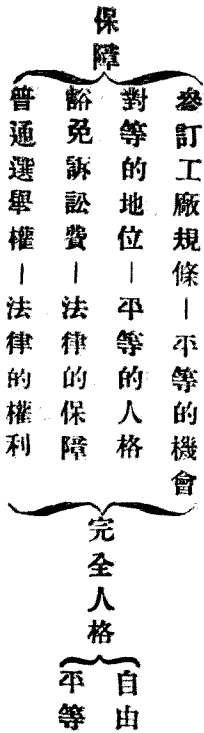 保障
參訂工廠規條—平等的機會
對等的地位—平等的人格
豁免訴訟費—法律的保障
普通選舉權—法律的權利
完全人格
自由
平等